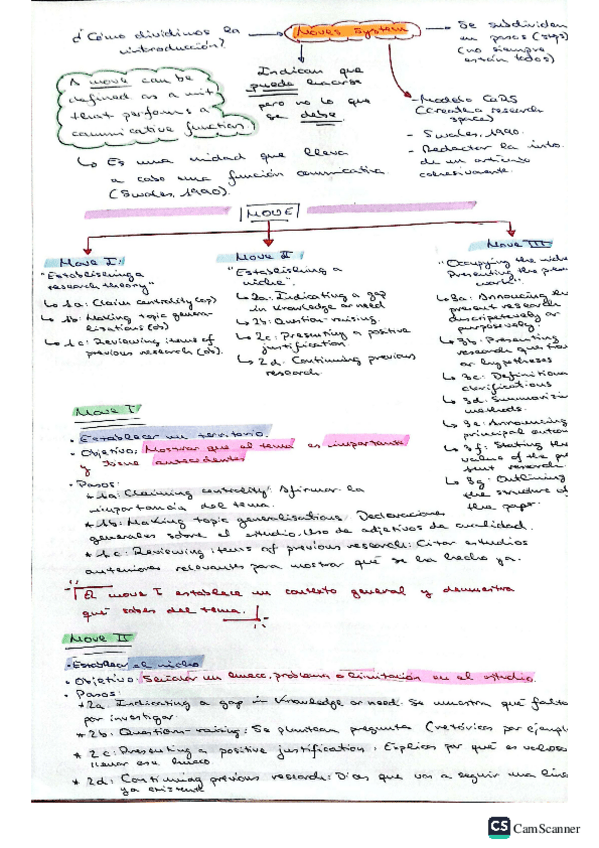 ¿Cómo dividimos la introducción?
Moves System
Se subdividen
en pasos (steps)
(no siempre
están todos)
Indican que
puede hacerse
pero no lo que
se debe.
A move can be
defined as a unit
that performs a
communicative function.
- Modelo CaRS
(Create a research
space)
- Swales, 1990.
- Redactar la into.
de un artículo
Es una unidad que lleva
a cabo una función comunicativa
(Swales, 1990).
MOVE
Move I:
"Establishing a
research theory"
1a: Claim centrality (op)
1b: Making topic gene­ra-
lisations (ob)
1c: Reviewing items of
previous research (ob).
Move II
"Establishing a
niche".
2a: Indicating a gap
in knowledge or need
2b: Question-raising.
2c: Presenting a positive
justification.
2d: Continuing previous
research.
Move III
"Occupying the nich
Presenting the pres
work".
3a: Announcing the
present research
descriptively or
purposively.
3b: Presenting
research question
or hypotheses
3c: Definitional
clarifications
3d: Summarizin
methods.
3e: Announcing
principal outco
3f: Stating the
value of the p
sent research.
3g: Outlining
the structure of
the paper.
Move I
• Establecer un territorio.
• Objetivo: Mostrar que el tema es importante
y tiene antecedentes
• Pasos:
* 1a: Claiming centrality: Afirmar la
importancia del tema.
* 1b: Making topic generalisations: Declaraciones
generales sobre el estudio. Uso de adjetivos de cualidad.
* 1c: Reviewing items of previous research: Citar estudios
anteriores relevantes para mostrar qué se ha hecho ya.
El move I establece un contexto general y demuestra
qué sabes del tema.
Move II
• Establecer el nicho
• Objetivo: Señalar un hueco, problema o limitación en el estudio.
• Pasos:
* 2a: Indicating a gap in knowledge or need: Se muestra qué falta
por investigar.
* 2b: Question-raising: Se plantean pregunta (retóricas por ejempl
* 2c: Presenting a positive justification: Explicas por qué es valioso
llenar ese hueco.
* 2d: Continuing previous research: Dices que vas a seguir una líne
ya existente
CS CamScanner